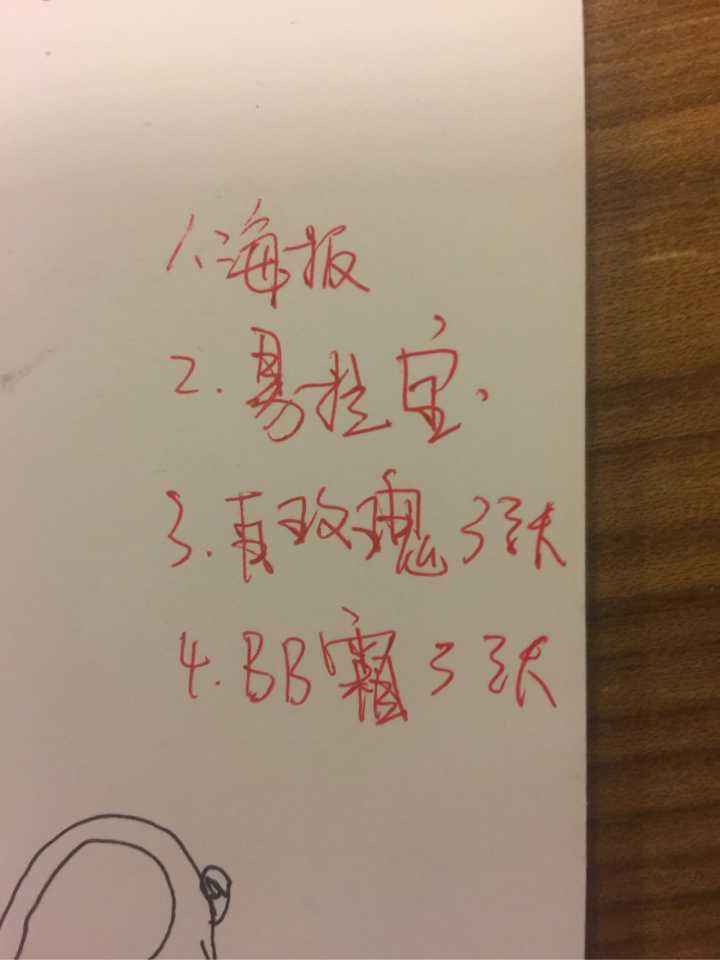 1.海报
2.易拉宝.
3.有玫瑰3张
4.BB霜3张